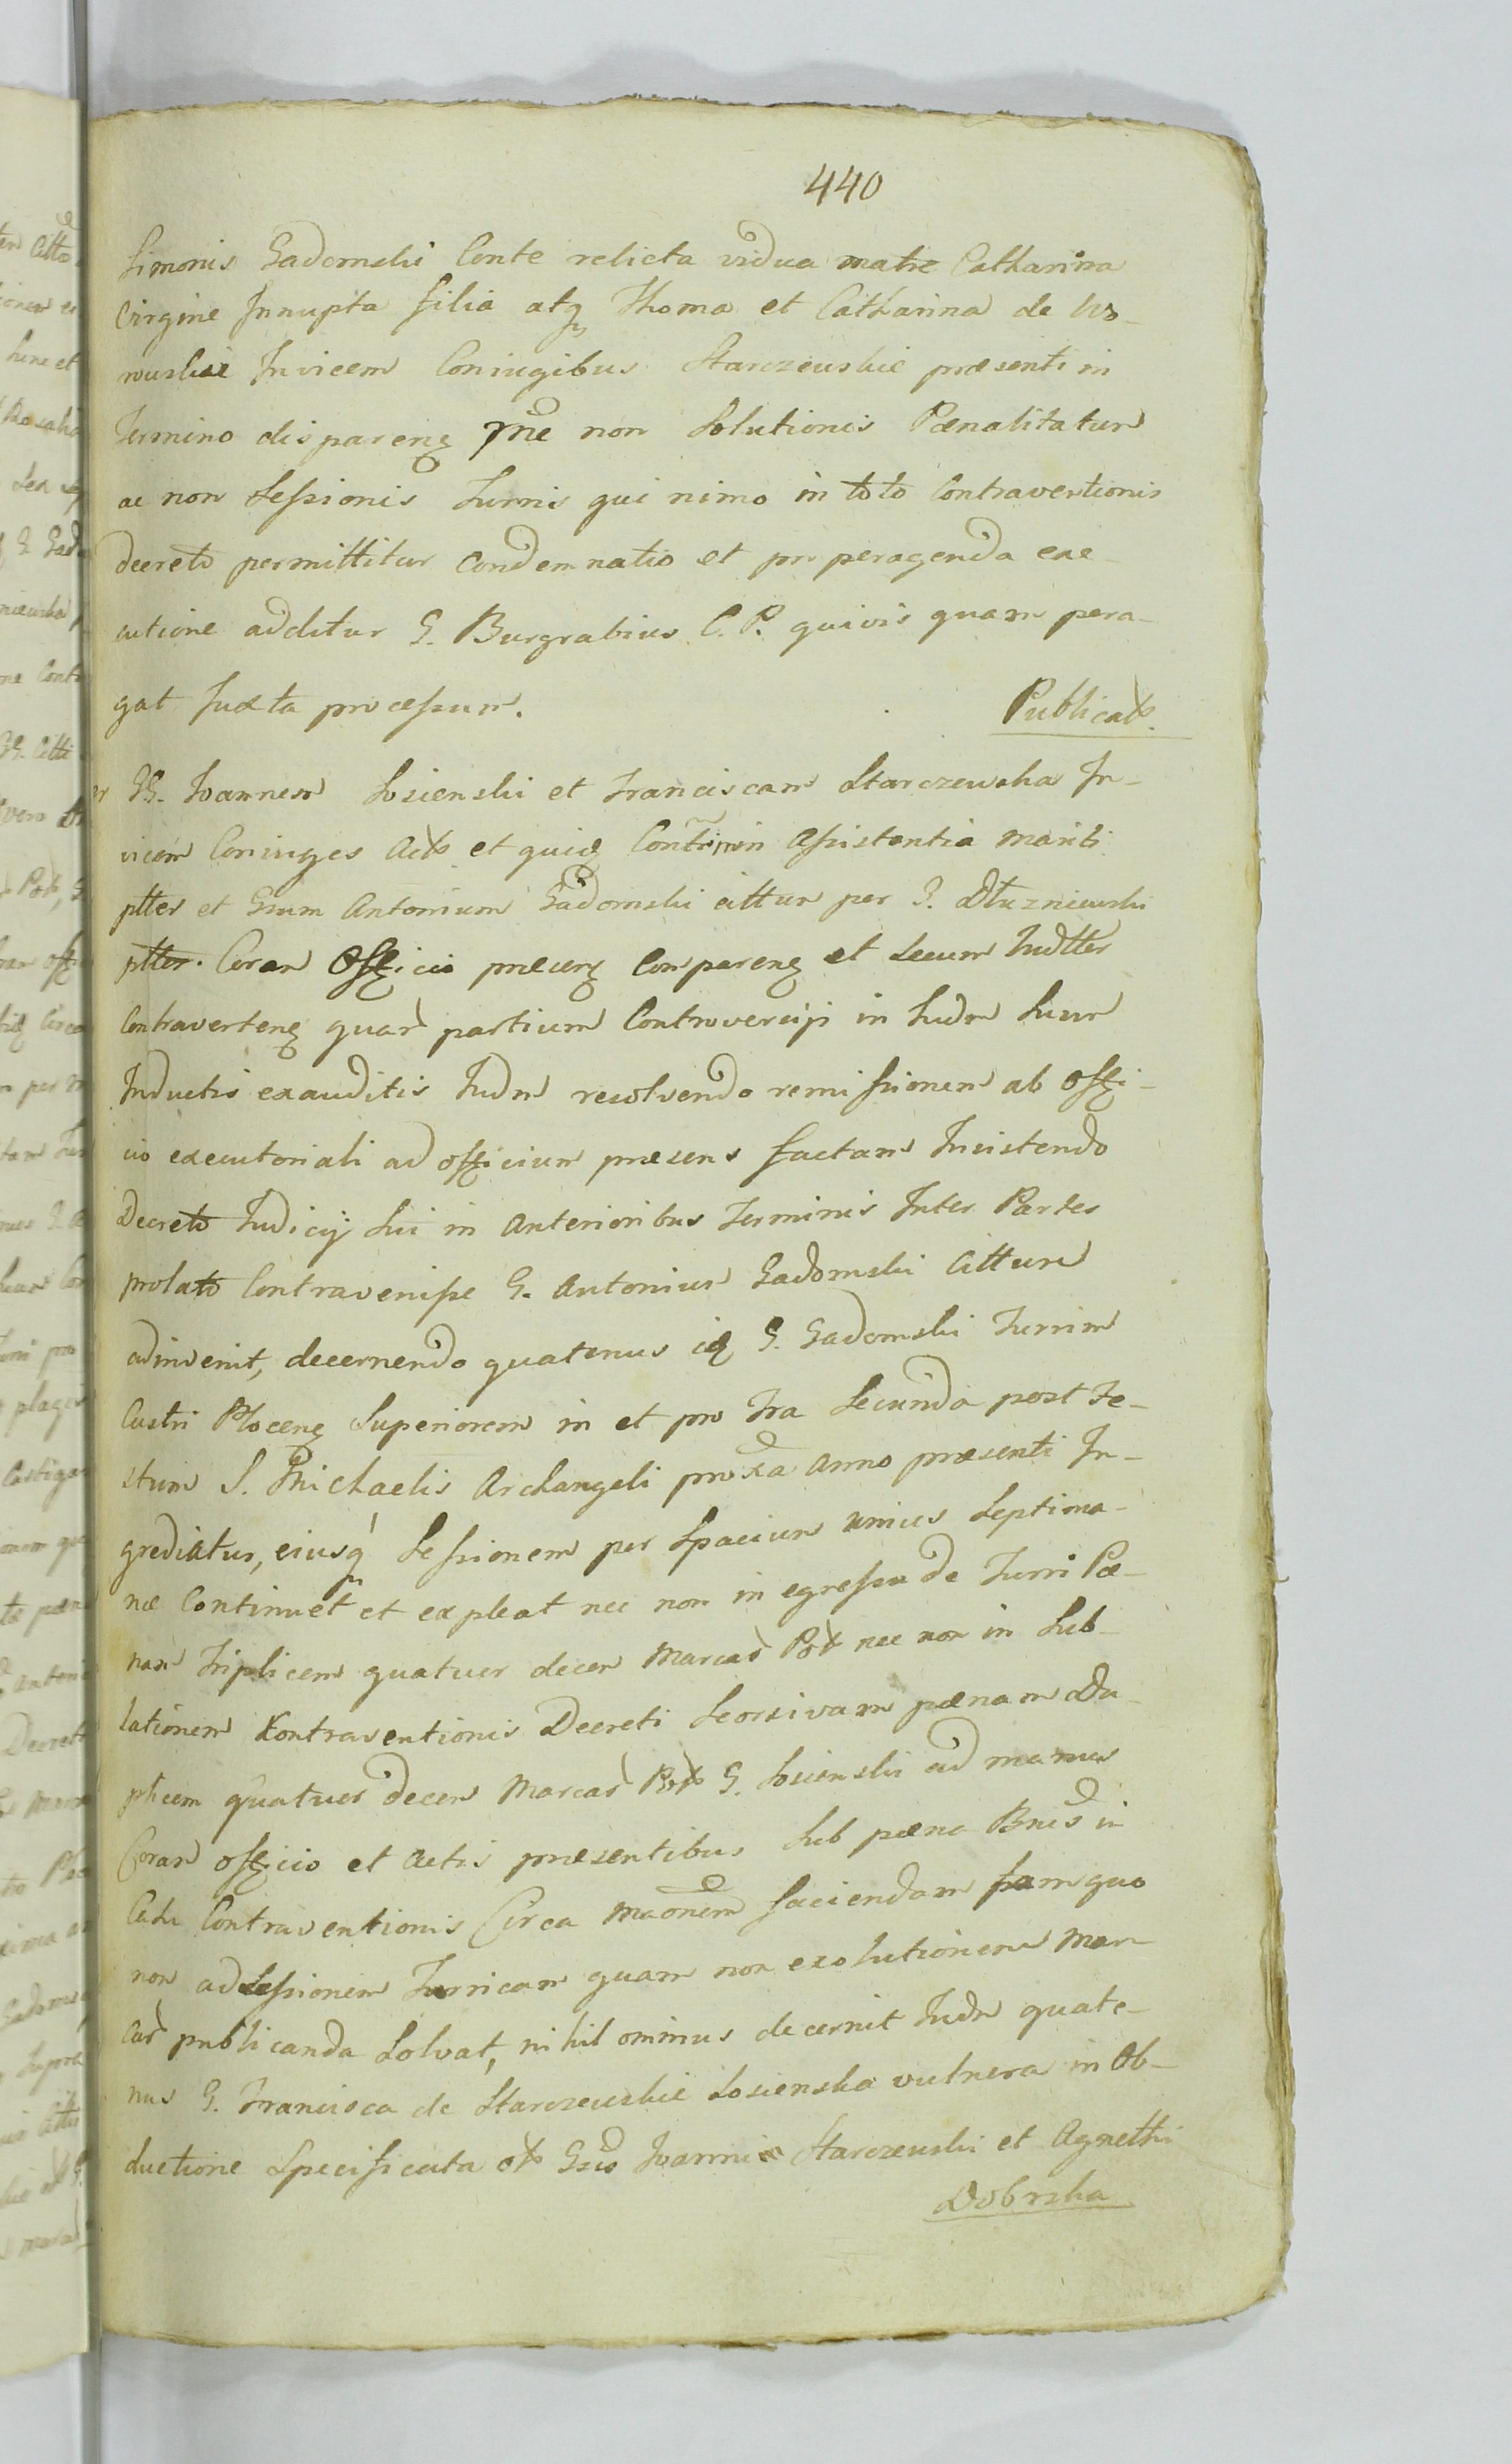 440
Simonis Gadomski Conte relicta vidua matre Catharina
Virgine Innupta filia atq Thoma et Catharina de Wo-
rouskie Invicem Coniugibus Starczewskie præsenti in
Termino dispareng rne non Solutionis Pœnalitatum
ac non Sessionis Turris qui nimo in toto Contraventionis
decreto permittitur Condemnatio et pro peragenda exe
cutione additur G. Burgrabius C. P. quivis quam pera-
gat Juxta processum.
Publicat.
GG. Joannem Łosienski et Franciscam Starczewska In-
vicem Coniuges Act et quid in Assistentia mariti
ptter et Gsum Antonium Gadomski cittum per G. Dłuzniewski
ptter. Coram Officio præseng Compareng et Secum Judtter
Contraverteng quar partium Controversijs in Judm Suum
Inductis exauditis Judm resolvendo remissionem ab offi-
cio executoriali ad officium præsens factam Insistendo
Decreto Judicij Sui in Anterioribus Terminis Inter Partes
prolato Contravenisse G. Antonium Gadomski Cittum
adinvenit, decernendo quatenus id G. Gadomski Turrim
Castri Ploceng Superiorem in et pro Fra Secunda post Fe-
stum S. Michaelis Archangeli proxa Anno præsenti In-
grediatur, eiusq Sessionem per Spacium unius Septima-
næ Continuet et expleat nec non in egressu de Turri Pœ-
nam Triplicem quatuor decem Marcar Pot nec non in Sub-
lationem Kontraventionis Decreti Seorsivam pœnam Du-
plicem quatuor decem Marcar Pot G. Łosienski ad manus
Coram officio et Actis præsentibus Sub pœna Bnis in
Casu Contraventionis Circa maonem faciendam tam quo
non ad Sessionem Turricam quam non exolutionem Mar
car publicanda Solvat, nihilominus decernit Judm quate-
nus G. Francisca de Starczewskie Łosienska vulnera in Ob-
ductione Specificata ot Gso Joannis Starczewski et Agnethi
Dobrska